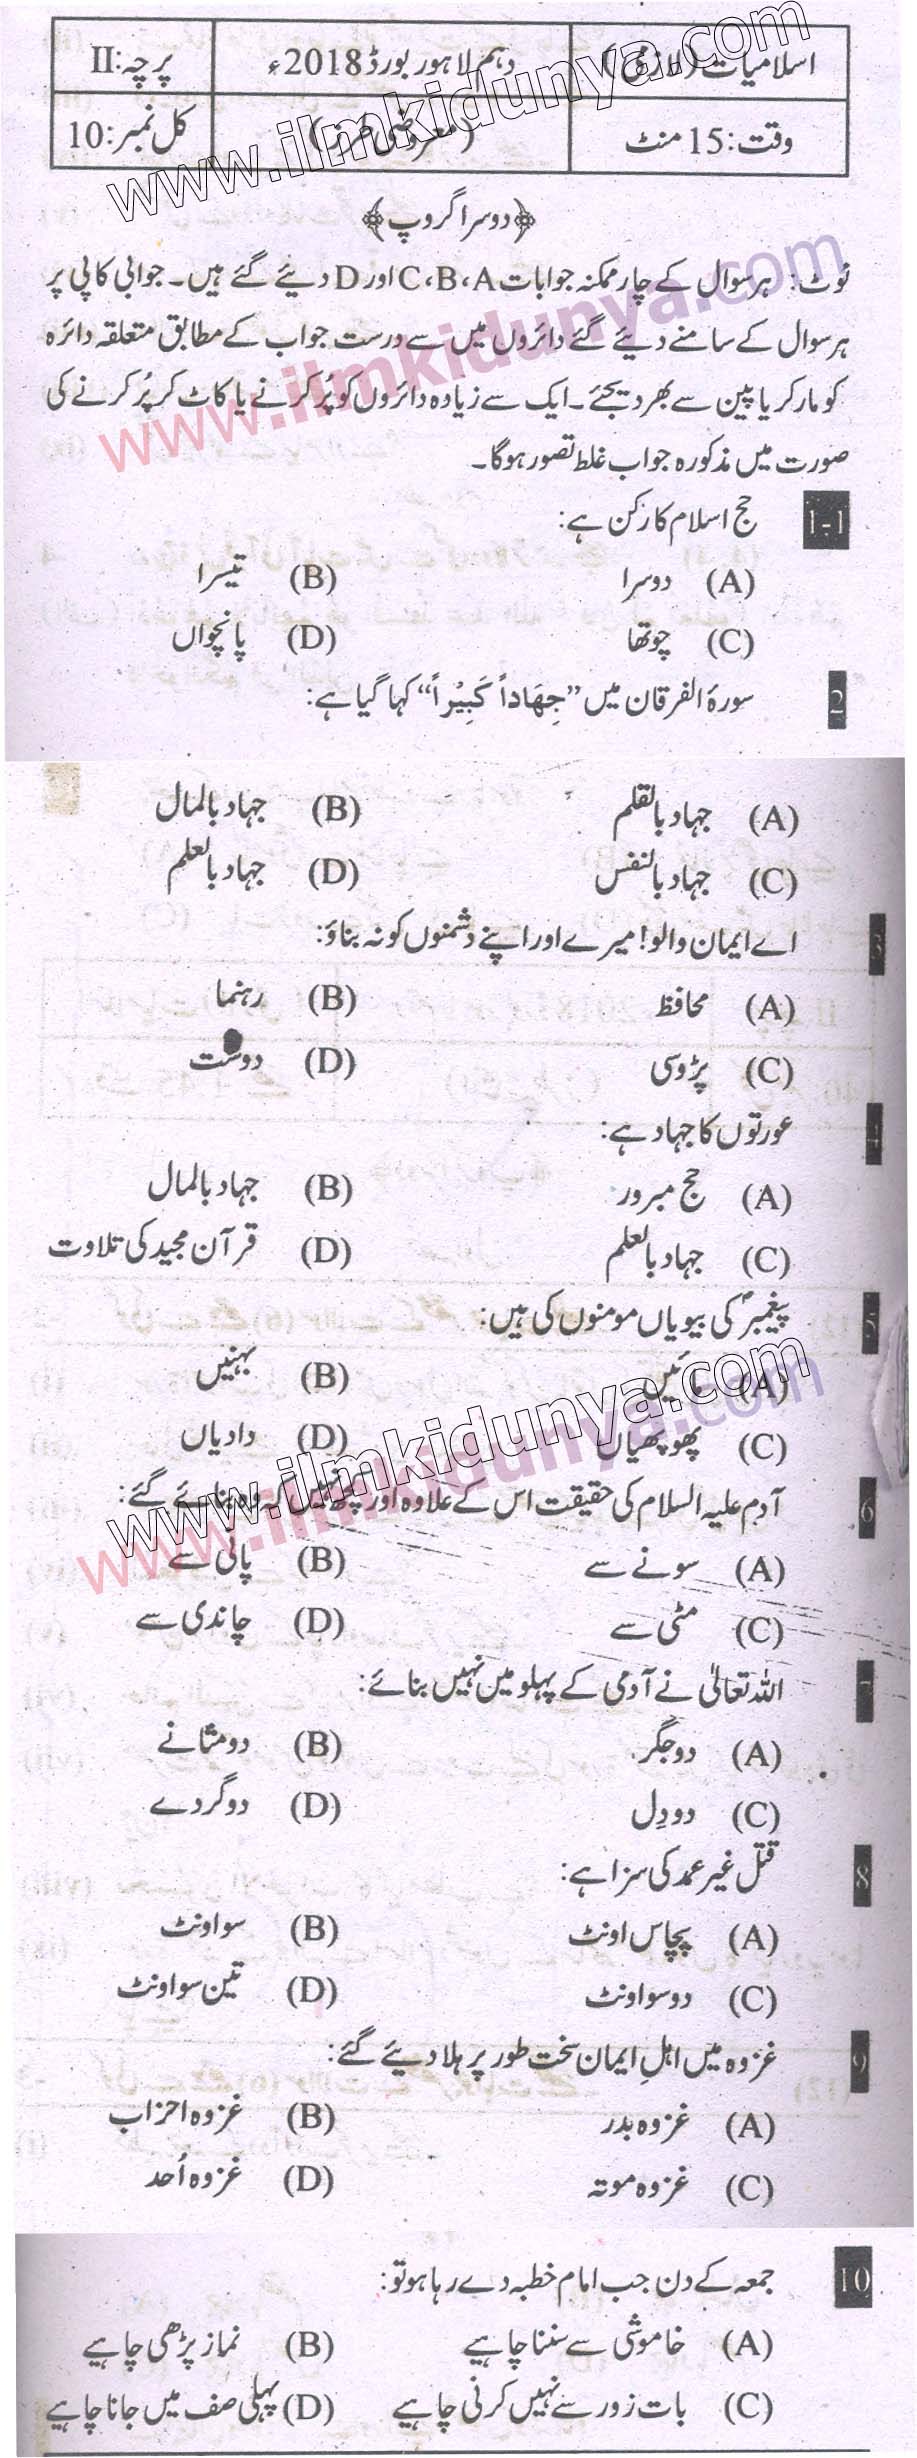 اسلامیات (لازمی) دہم لاہور بورڈ 2018ء پرچہ: II
وقت: 15 منٹ (معروضی طرز) کل نمبر: 10
﴿دوسرا گروپ﴾
نوٹ: ہر سوال کے چار ممکنہ جوابات C،B،A اور D دیئے گئے ہیں۔ جوابی کاپی پر
ہر سوال کے سامنے دیئے گئے دائروں میں سے درست جواب کے مطابق متعلقہ دائرہ
کو مارکر یا پین سے بھر دیجئے۔ ایک سے زیادہ دائروں کو پُر کرنے یا کاٹ کر پُر کرنے کی
صورت میں مذکورہ جواب غلط تصور ہوگا۔
1-1 حج اسلام کا رکن ہے:
(A) دوسرا (B) تیسرا
(C) چوتھا (D) پانچواں
2 سورۃ الفرقان میں ”جِهَاداً كَبِيْراً“ کہا گیا ہے:
(A) جہاد بالقلم (B) جہاد بالمال
(C) جہاد بالنفس (D) جہاد بالعلم
3 اے ایمان والو! میرے اور اپنے دشمنوں کو نہ بناؤ:
(A) محافظ (B) رہنما
(C) پڑوسی (D) دوست
4 عورتوں کا جہاد ہے:
(A) حج مبرور (B) جہاد بالمال
(C) جہاد بالعلم (D) قرآن مجید کی تلاوت
5 پیغمبرؐ کی بیویاں مومنوں کی ہیں:
(A) مائیں (B) بہنیں
(C) پھوپھیاں (D) دادیاں
6 آدم علیہ السلام کی حقیقت اس کے علاوہ اور کچھ نہیں کہ وہ بنائے گئے:
(A) سونے سے (B) پانی سے
(C) مٹی سے (D) چاندی سے
7 اللہ تعالیٰ نے آدمی کے پہلو میں نہیں بنائے:
(A) دو جگر (B) دو مثانے
(C) دو دِل (D) دو گردے
8 قتل غیر عمد کی سزا ہے:
(A) پچاس اونٹ (B) سو اونٹ
(C) دو سو اونٹ (D) تین سو اونٹ
9 غزوہ میں اہلِ ایمان سخت طور پر ہلا دیئے گئے:
(A) غزوہ بدر (B) غزوہ احزاب
(C) غزوہ موتہ (D) غزوہ اُحد
10 جمعہ کے دن جب امام خطبہ دے رہا ہو تو:
(A) خاموشی سے سننا چاہیے (B) نماز پڑھی چاہیے
(C) بات زور سے نہیں کرنی چاہیے (D) پہلی صف میں جانا چاہیے
www.ilmkidunya.com
www.ilmkidunya.com
www.ilmkidunya.com
www.ilmkidunya.com